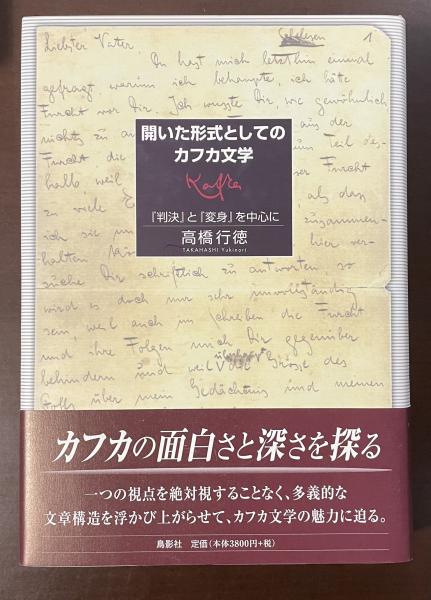 Liebster Vater, Gelesen 1
Du hast mich letzthin einmal
gefragt, warum ich behaupte, ich hätte
Furcht vor Dir. Ich wusste Dir, wie gewöhnlich
nichts zu aus der
Teil des-
Furcht die Furcht
halb weil als dass
zu viele
ich sie zusammen-
halten hier ver-
suche Dir schriftlich zu antworten so
wird es doch nur sehr unvollständig
sein, weil auch im Schreiben die Furcht
und ihre Folgen mich Dir gegenüber
behindern und weil die Grösse des
Stoffs über mein Gedächtnis und meinen
開いた形式としての
カフカ文学
Kafka
『判決』と『変身』を中心に
高橋行徳
TAKAHASHI Yukinori
カフカの面白さと深さを探る
一つの視点を絶対視することなく、多義的な
文章構造を浮かび上がらせて、カフカ文学の魅力に迫る。
鳥影社 定価(本体3800円+税)